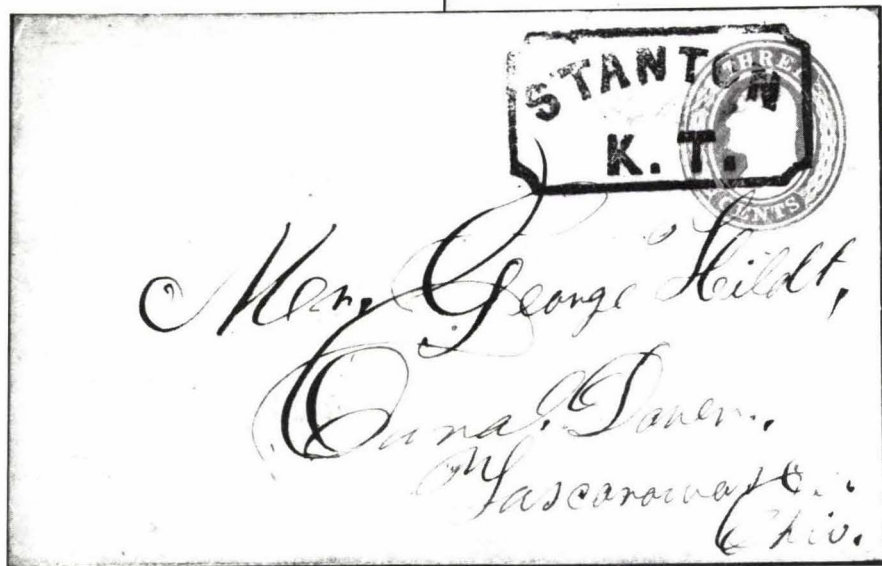 STANTON
K. T.
THREE
CENTS
Mr. George Hildt,
Canal Dover.
Tuscarawas Co.
Ohio.